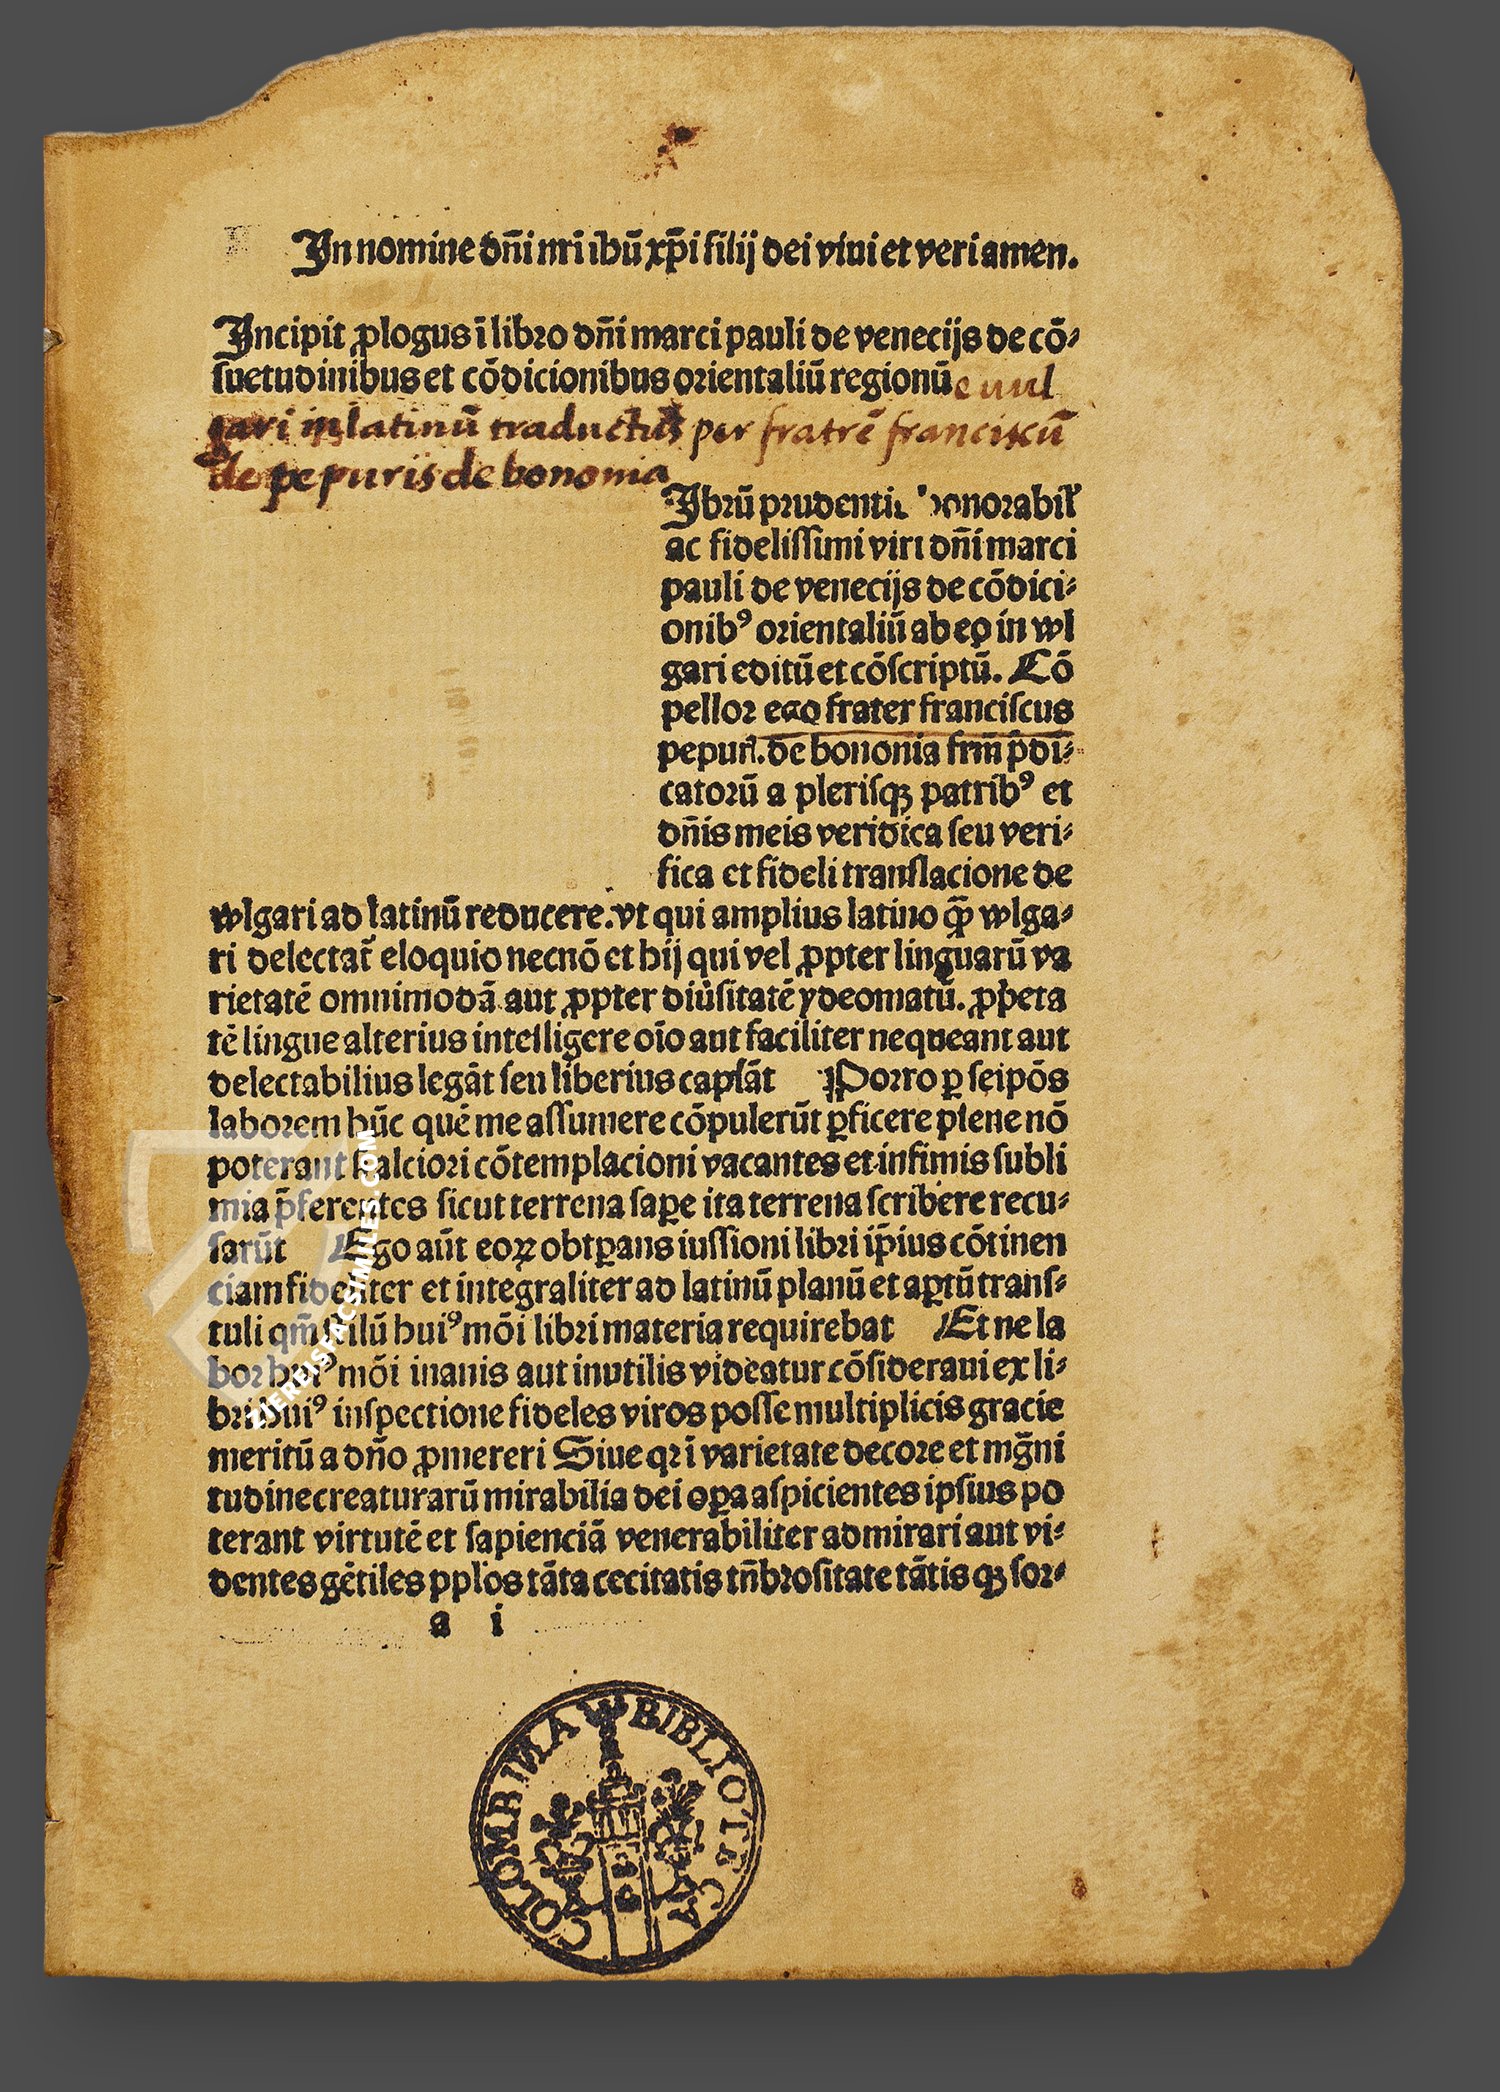 In nomine dñi nri ihū xp̄i filij dei viui et veri amen.
Incipit ꝓlogus ī libro dñi marci pauli de venecijs de cō⸗
suetudinibus et cōdicionibus orientaliū regionū e uul
gari in latinū traductus per fratrē franciscū
de pepuriis de bononia
Ibrū prudentis honorabil̄
ac fidelissimi viri dñi marci
pauli de venecijs de cōdici⸗
onibꝰ orientaliū ab eo in wl
gari editū et cōscriptū. Cō
pellor ego frater franciscus
pepuri. de bononia frm̄ p̄di⸗
catorū a plerisqꝫ patribꝰ et
dñis meis veridica seu veri⸗
fica et fideli translacione de
wlgari ad latinū reducere. vt qui amplius latino qp̄ wlga⸗
ri delectat̄ eloquio necnō et hij qui vel ꝓpter linguarū va
rietatē omnimodā aut ꝓpter diūsitatē ydeomatū. ꝓp̄eta
tē lingue alterius intelligere oīo aut faciliter nequeant aut
delectabilius legāt seu liberius capiāt Porro ꝑ seipōs
laborem hūc quē me assumere cōpulerūt ꝑficere plene nō
poterant s alciori cōtemplacioni vacantes et infimis subli
mia p̄ferentes sicut terrena saꝑe ita terrena scribere recu⸗
sarūt Ego aūt eoꝝ obtꝑans iussioni libri ip̄ius cōtinen
ciam fideliter et integraliter ad latinū planū et aꝑtū trans⸗
tuli qm̄ stilū huiꝰmōi libri materia requirebat Et ne la
bor huiꝰmōi inanis aut inutilis videatur cōsideraui ex li⸗
bri huiꝰ inspectione fideles viros posse multiplicis gracie
meritū a dño ꝓmereri Siue qr ī varietate decore et mḡni
tudine creaturarū mirabilia dei oꝑa aspicientes ipsius po
terant virtutē et sapienciā venerabiliter admirari aut vi⸗
dentes gētiles pplos tāta cecitatis tñbrositate tātis qꝫ sor⸗
a i
BIBLIOTECA COLOMBINA
ZIEREISFACSIMILES.COM